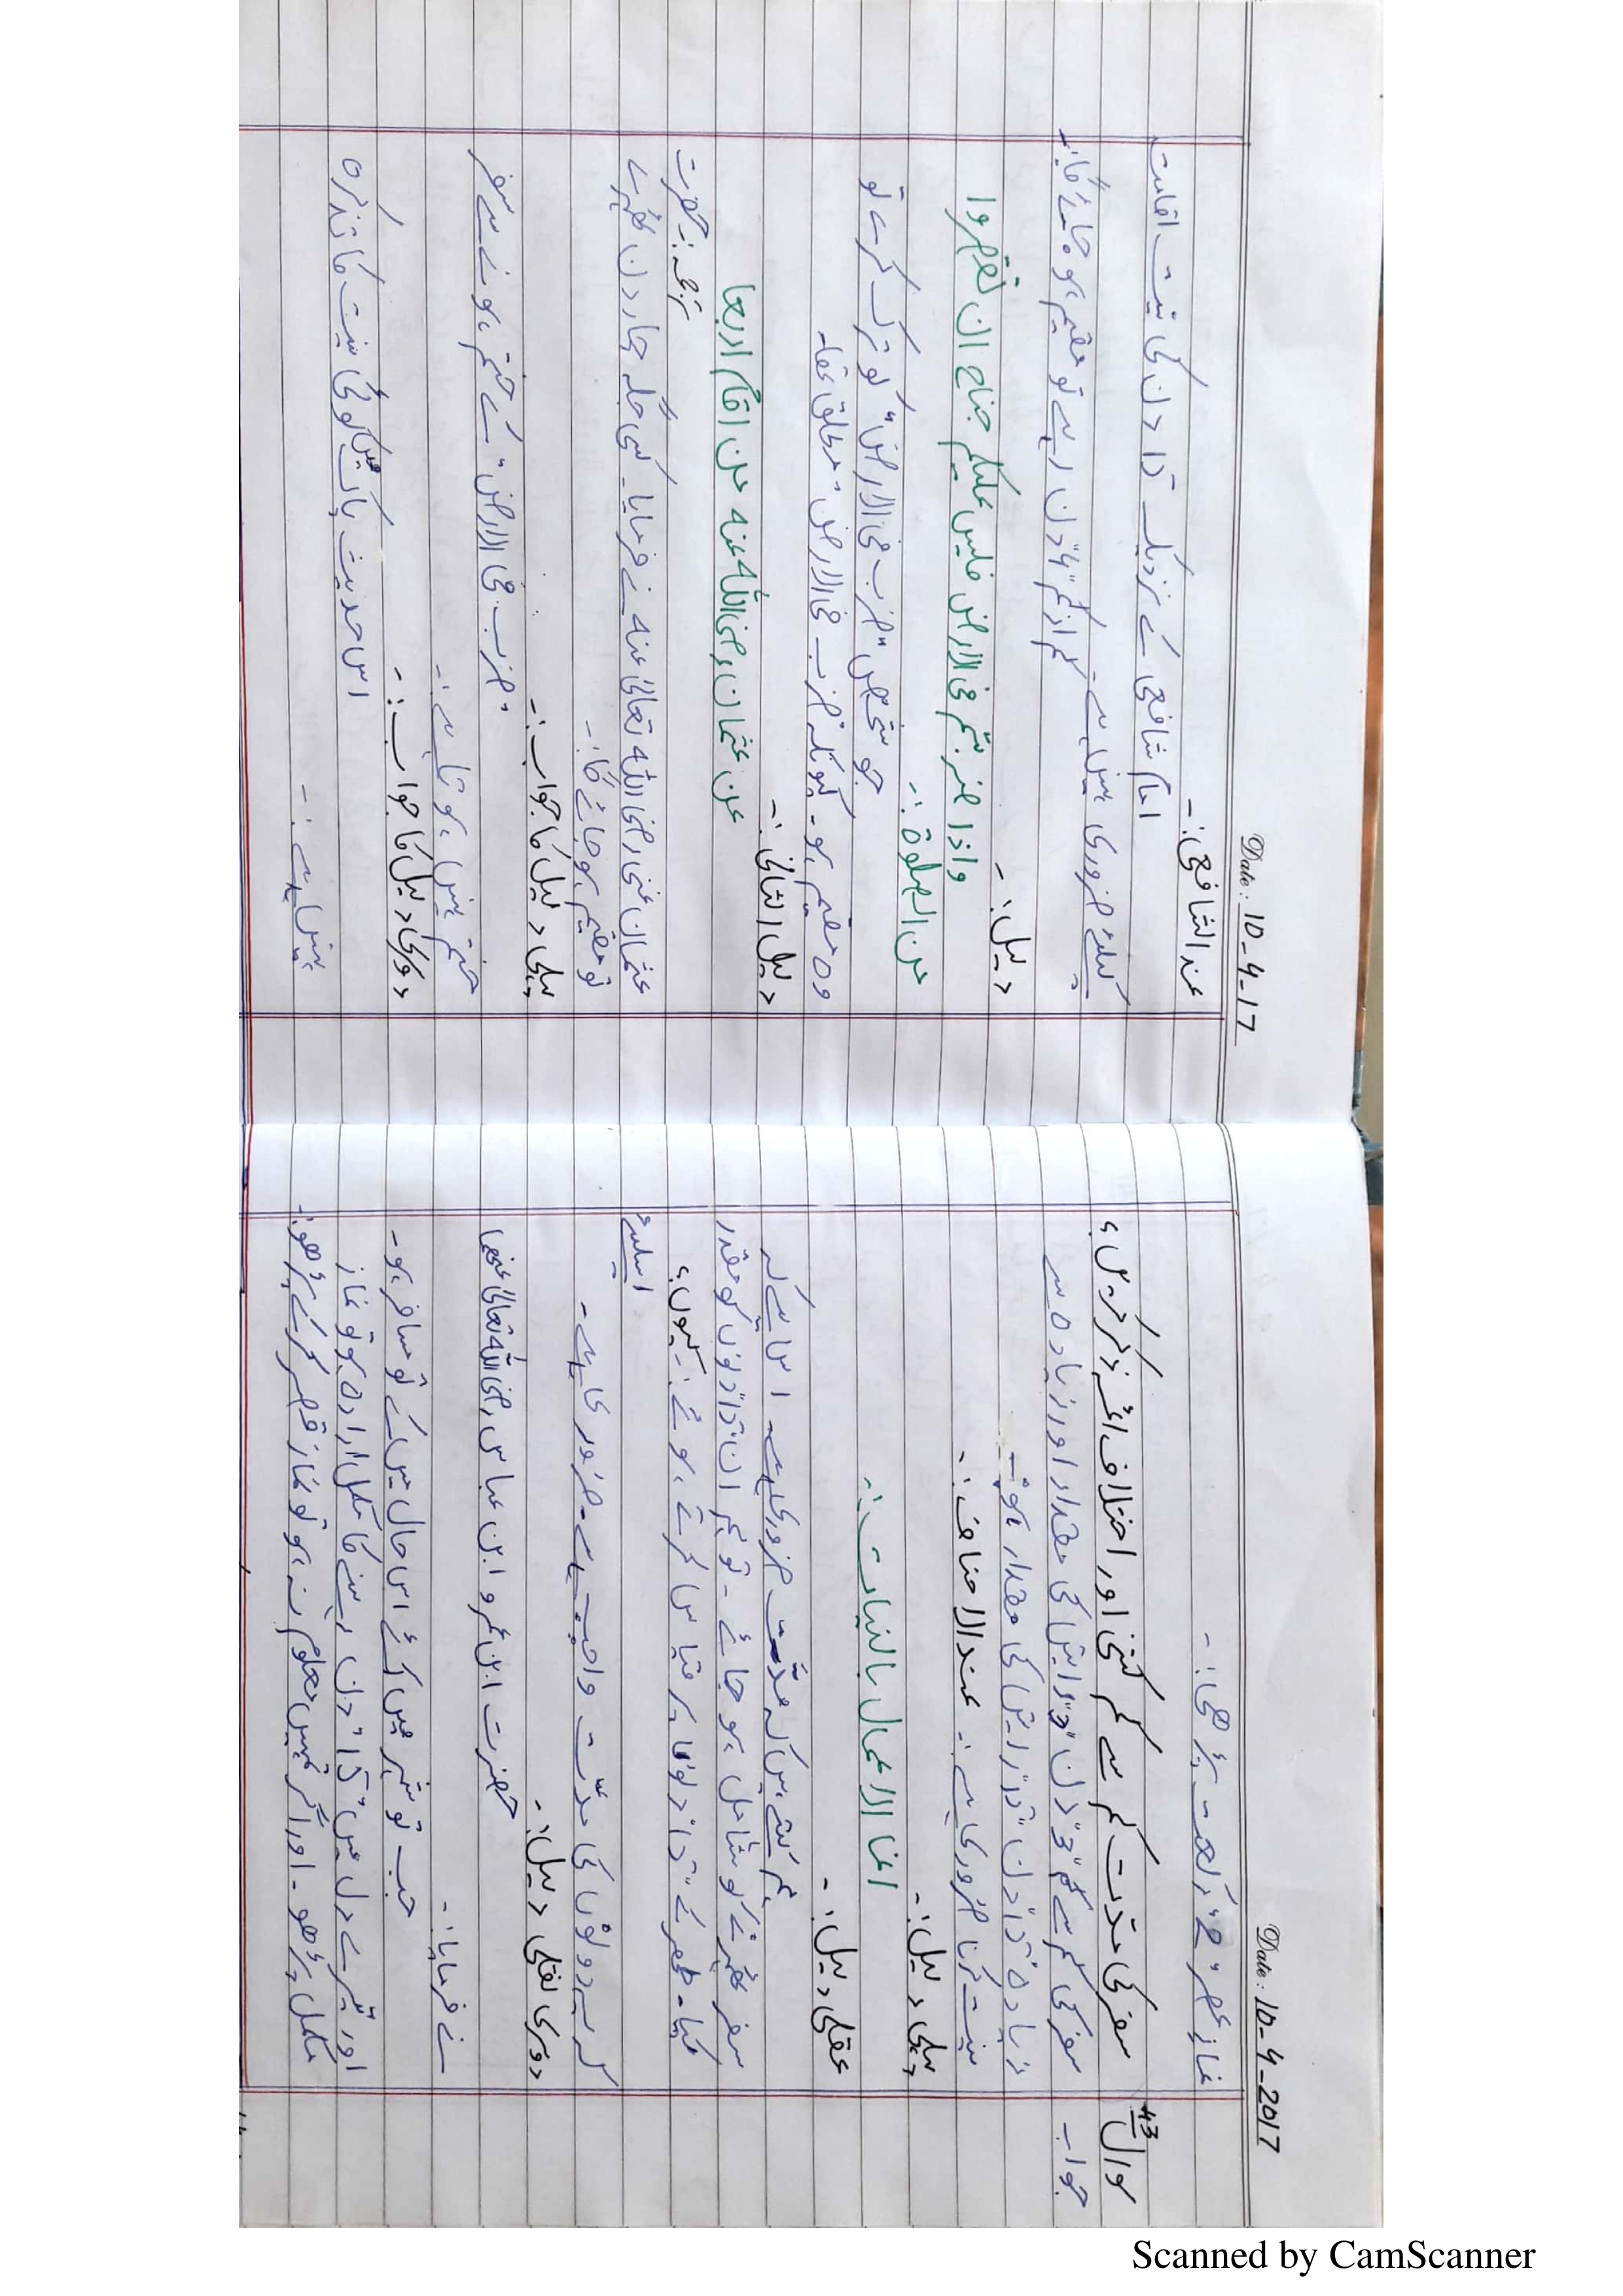 Date: 10-4-2017
نماز عصر "2" رکعت پڑھی:-
سوال 43 سفر کی مدت کم سے کم کتنی اور اختلاف ائمہ ذکر کریں؟
جواب سفر کی کم سے کم "3" دن "3" راتیں کی مقدار اور زیادہ سے
زیادہ "15" دن "15" راتیں کی مقدار
نیت کرنا ضروری ہے:- عند الاحناف:-
پہلی دلیل:-
انما الاعمال بالنیات:-
عقلی دلیل:-
ہم کہتے ہیں کہ مدّت ضروری ہے۔ اس لئے کہ
سفر ٹھہرنے کو شامل ہو جائے۔ تو ہم ان "15" دنوں کو مقدر
کیا۔ طہر کے "15" دنوں پر قیاس کرتے ہوئے:- کیوں؟
اسلیئے
کہ یہ دونوں کی مدّت واجب ہے۔ ضروری ہے۔
دوسری نقلی دلیل:-
حضرت ابن عمر و ابن عباس رضی اللہ تعالیٰ عنھما
نے فرمایا:-
جب تو شہر میں آئے اس حال میں کے تو مسافر ہو۔
اور تیرے دل میں "15" دن رہنے کا مکمل ارادہ ہو تو نماز
مکمل پڑھو۔ اور اگر تمہیں معلوم نہ ہو تو نماز قصر کرکے پڑھو:-
Date: 10-4-17
عند الشافعی:-
امام شافعی کے نزدیک "15" دن کی نیت اقامت
کیلئے ضروری نہیں ہے۔ کم از کم "4" دن رہے تو مقیم ہو جائے گا:-
دلیل:-
واذا ضربتم فی الارض فلیس علیکم جناح ان تقصروا
من الصلوۃ:-
جو شخص "ضرب فی الارض" کو ترک کرے تو
وہ مقیم ہو۔ کیونکہ ضرب فی الارض مطلق تھا۔
دلیل الثانی:-
عن عثمان رضی اللہ عنہ من اقام اربعا
ترجمہ:- حضرت
عثمان غنی رضی اللہ تعالیٰ عنہ نے فرمایا۔ کسی جگہ چار دن ٹھہرے
تو مقیم ہو جائے گا:-
پہلی دلیل کا جواب:-
"ضرب فی الارض" کے ختم ہونے سے سفر
ختم نہیں ہوتا ہے:-
دوسری دلیل کا جواب:-
اس حدیث پاک میں کوئی نیت کا تذکرہ
نہیں ہے:-
Scanned by CamScanner